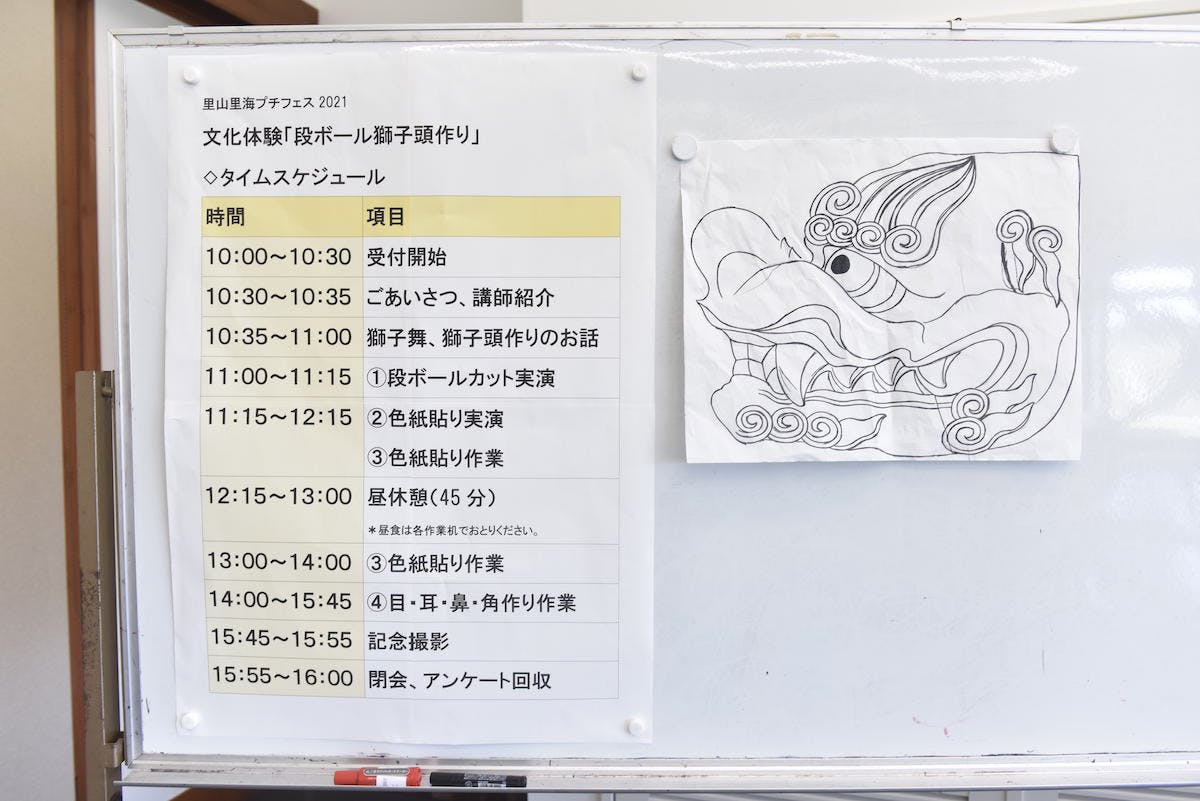 里山里海プチフェス 2021
文化体験「段ボール獅子頭作り」
◇タイムスケジュール
時間 項目
10:00～10:30 受付開始
10:30～10:35 ごあいさつ、講師紹介
10:35～11:00 獅子舞、獅子頭作りのお話
11:00～11:15 ①段ボールカット実演
11:15～12:15 ②色紙貼り実演
③色紙貼り作業
12:15～13:00 昼休憩（45 分）
＊昼食は各作業机でおとりください。
13:00～14:00 ③色紙貼り作業
14:00～15:45 ④目・耳・鼻・角作り作業
15:45～15:55 記念撮影
15:55～16:00 閉会、アンケート回収